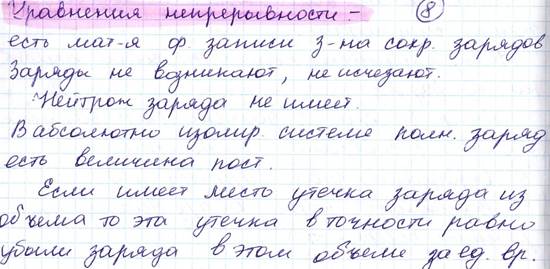 Уравнения непрерывности – 8
есть мат-я ф. записи З-на сохр. зарядов
Заряды не возникают, не исчезают.
Нейтрон заряда не имеет.
В абсолютно изолир. системе полн. заряд
есть величина пост.
Если имеет место утечка заряда из
объема то эта утечка в точности равно
убыли заряда в этом объеме за ед. вр.